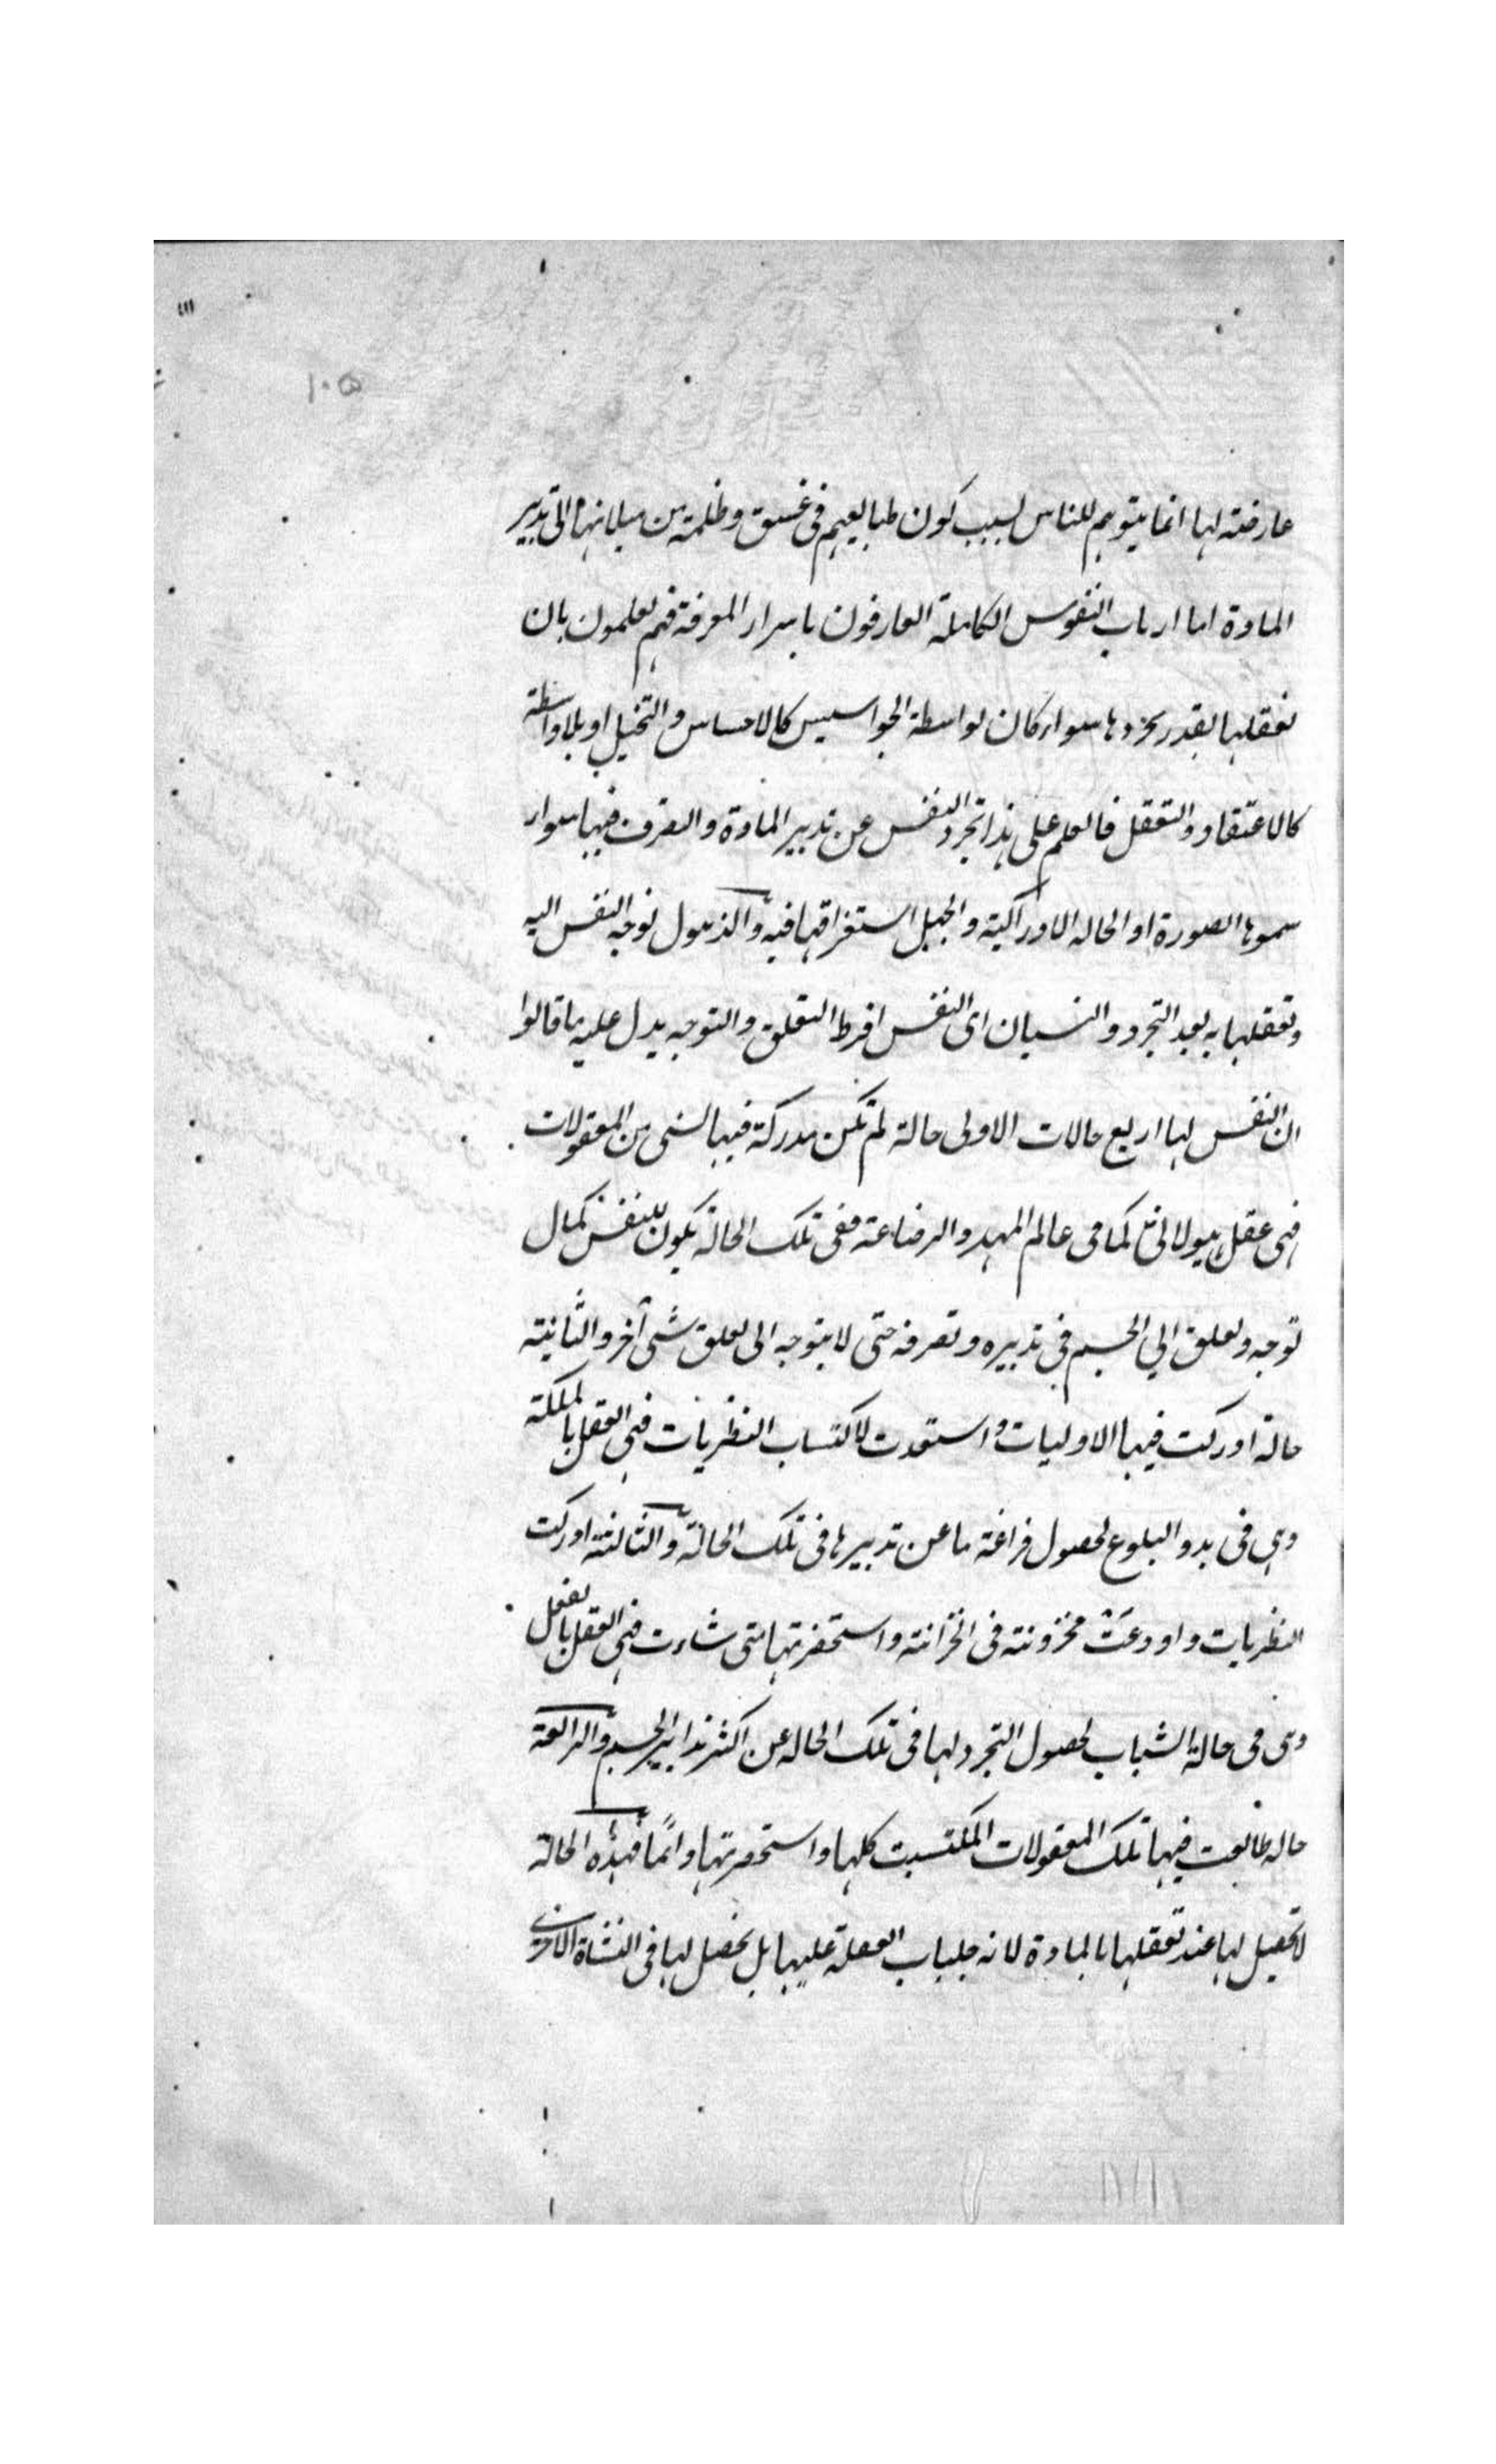 ١١١
١٠٥
عارضته لها انما يتوهم للناس لسبب كون طبايعهم فى غسق وظلمة من ميلانها الى تدبير
المادة اما ارباب النفوس الكاملة العارفون باسرار المعرفة فهم يعلمون بان
تعقلها بقدر تجردها سواء كان بواسطة الجواسيس كالاحساس والتخيل او بلا واسطة
كالاعتقاد والتعقل فالعلم على هذا تجرد النفس عن تدبير المادة والتصرف فيها سواء
سموها الصورة او الحالة الادراكية والجهل استغراقها فيه والذهول توجه النفس اليه
وتعقلها به بعد التجرد والنسيان اى النفس افرط التعلق والتوجه يدل عليه ما قالوا
ان النفس لها اربع حالات الاولى حالة لم تكن مدركة فيها لشى من المعقولات
فهى عقل هيولانى كما فى عالم المهد والرضاعة ففى تلك الحالة يكون للنفس كمال
توجه وتعلق الي الجسم فى تدبيره وتصرفه حتى لا يتوجه الى تعلق شئ آخر والثانية
حالة ادركت فيها الاوليات واستعدت لاكتساب النظريات فهى العقل بالملكة
وهى فى بدو البلوغ لحصول فراغة ما عن تدبيرها فى تلك الحالة والثالثة ادركت
النظريات واودعت مخزونة فى الخزانة واستحضرتها متى شاءت فهى العقل بالفعل
وهى فى حالة الشباب لحصول التجرد لها فى تلك الحالة عن اكثر تدابير الجسم والرابعة
حالة طالعت فيها تلك المعقولات المكتسبة كلها واستحضرتها دائمًا فهذه الحالة
لا تحصيل لها عند تعقلها بالمادة لانه جلباب الغفلة عليها بل تحصل لها فى النشاة الاخرى